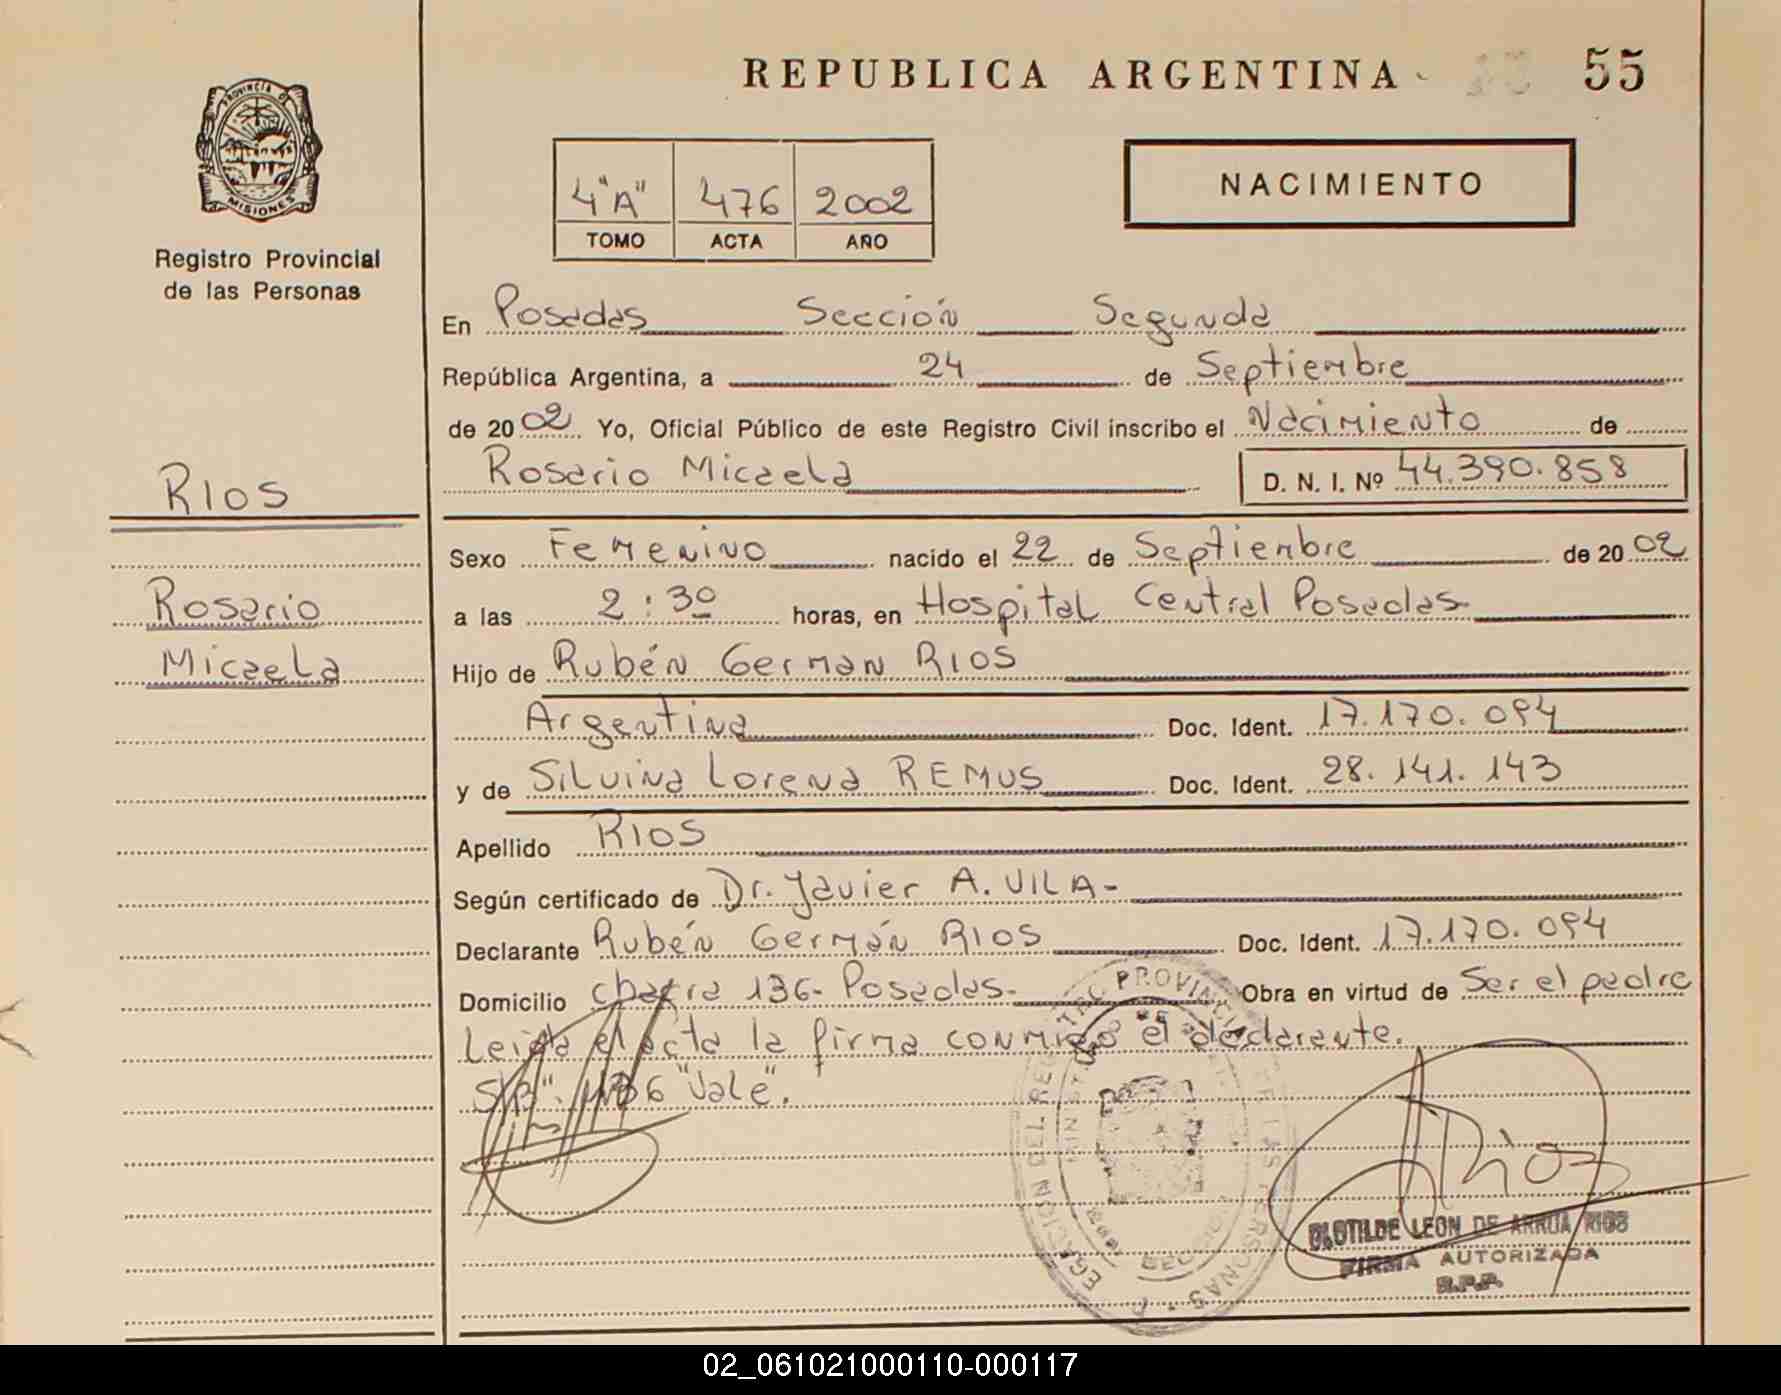 REPUBLICA ARGENTINA
55
PROVINCIA DE
MISIONES
Registro Provincial
de las Personas
4"A" 476 2002
TOMO ACTA AÑO
NACIMIENTO
En Posadas Sección Segunda
República Argentina, a 24 de Septiembre
de 2002 Yo, Oficial Público de este Registro Civil inscribo el Nacimiento de
Rosario Micaela D. N. I. Nº 44.390.858
RIOS
Rosario
Micaela
Sexo Femenino nacido el 22 de Septiembre de 2002
a las 2:30 horas, en Hospital Central Posadas
Hijo de Rubén German RIOS
Argentina Doc. Ident. 17.170.094
y de Silvina Lorena REMUS Doc. Ident. 28.141.143
Apellido RIOS
Según certificado de Dr. Javier A. VILA-
Declarante Rubén Germán RIOS Doc. Ident. 17.170.094
Domicilio chacra 136- Posadas- Obra en virtud de Ser el padre
Leida el acta la firma conmigo el declarante.
S/B": 136 "Vale".
PROVINCIAL DE LAS PERSONAS
Rios
CLOTILDE LEON DE ARRUA RIOS
FIRMA AUTORIZADA
R.P.P.
02_061021000110-000117